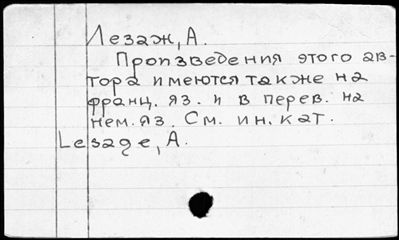 Лезаж, А.
Произведения этого ав-
тора имеются также на
франц. яз. и в перев. на
нем. яз. См. ин. кат.
Lesage, A.